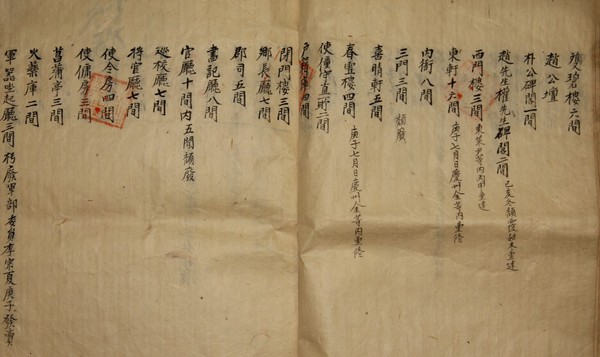 環碧樓六間
趙公壇
朴公碑閣一間
趙先生權先生碑閣二間 己亥冬頹
西門樓三間 東萊尹等內丙申重建
東軒十六間 庚子七月日慶州金等內重修
內衙八間
三門三間 頹廢
喜晴軒五間
春雪樓四間 庚子七月日慶州金等內重修
使僮守直所二間
庫四間
閉門樓三間
鄕長廳七間
郡司五間
書記廳八間
官廳十間內五間頹廢
巡校廳七間
將官廳七間
使令房四間
使傭房三間
菖蒲亭三間
火藥庫二間
軍器 起廳三間 朽廢軍部委員李宗夏庚子發賣